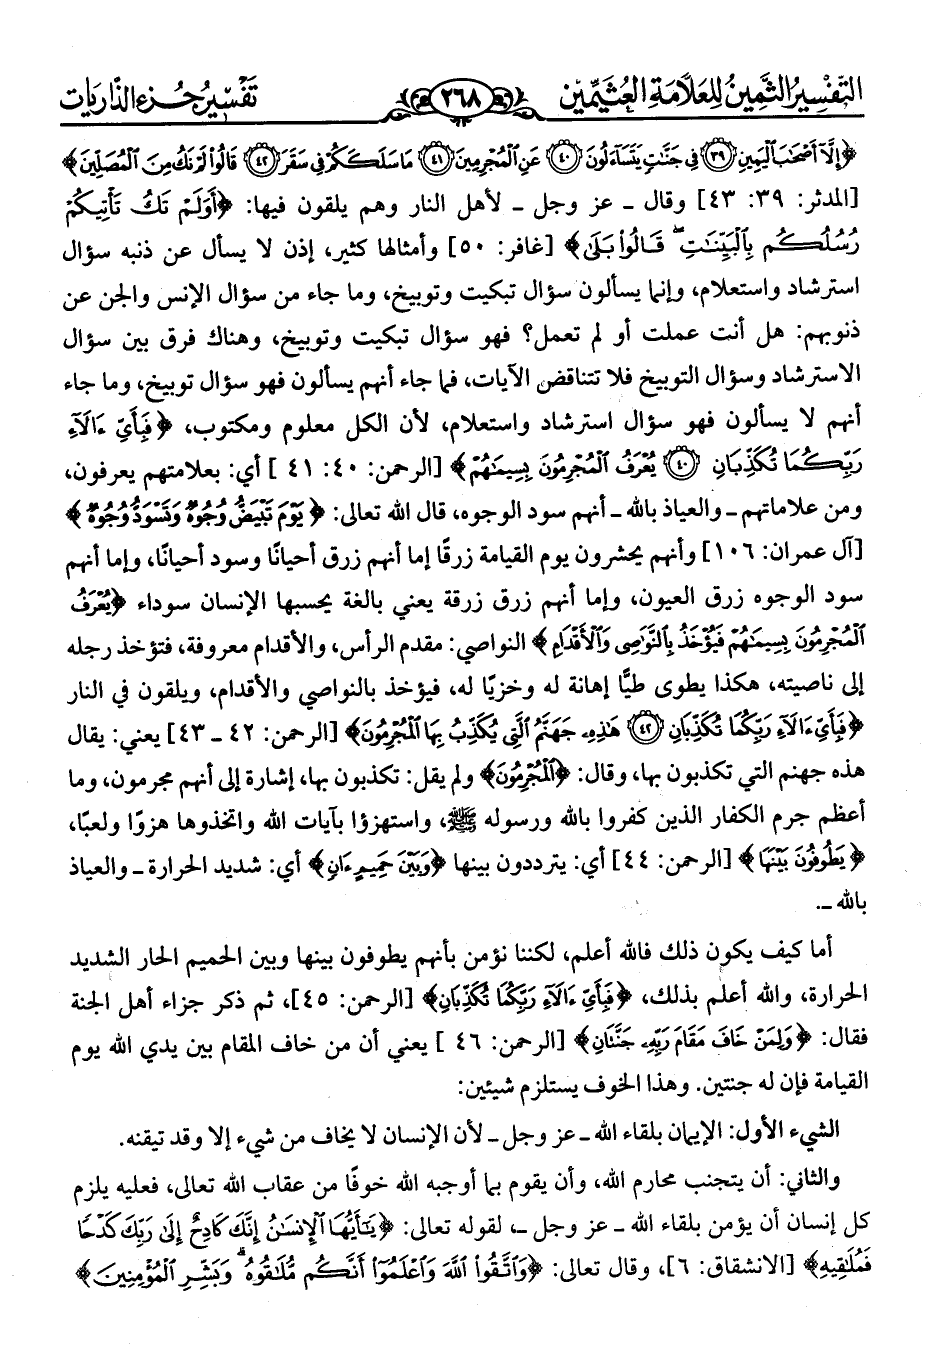 التفسير الثمين للعلامة العثيمين ٢٦٨ تفسير جزء الذاريات
﴿إِلَّا أَصْحَٰبَ الْيَمِينِ ٣٩ فِي جَنَّٰتٍ يَتَسَآءَلُونَ ٤٠ عَنِ الْمُجْرِمِينَ ٤١ مَا سَلَكَكُمْ فِي سَقَرَ ٤٢ قَالُوا لَمْ نَكُ مِنَ الْمُصَلِّينَ﴾
[المدثر: ٣٩: ٤٣] وقال ـ عز وجل ـ لأهل النار وهم يلقون فيها: ﴿أَوَلَمْ تَكُ تَأْتِيكُمْ
رُسُلُكُم بِالْبَيِّنَٰتِ ۖ قَالُوا بَلَىٰ﴾ [غافر: ٥٠] وأمثالها كثير، إذن لا يسأل عن ذنبه سؤال
استرشاد واستعلام، وإنما يسألون سؤال تبكيت وتوبيخ، وما جاء من سؤال الإنس والجن عن
ذنوبهم: هل أنت عملت أو لم تعمل؟ فهو سؤال تبكيت وتوبيخ، وهناك فرق بين سؤال
الاسترشاد وسؤال التوبيخ فلا تتناقض الآيات، فما جاء أنهم يسألون فهو سؤال توبيخ، وما جاء
أنهم لا يسألون فهو سؤال استرشاد واستعلام، لأن الكل معلوم ومكتوب، ﴿فَبِأَيِّ ءَالَآءِ
رَبِّكُمَا تُكَذِّبَانِ ٤٠ يُعْرَفُ الْمُجْرِمُونَ بِسِيمَٰهُمْ﴾ [الرحمن: ٤٠: ٤١ ] أي: بعلامتهم يعرفون،
ومن علاماتهم ـ والعياذ بالله ـ أنهم سود الوجوه، قال الله تعالى: ﴿ يَوْمَ تَبْيَضُّ وُجُوهٌ وَتَسْوَدُّ وُجُوهٌ ﴾
[آل عمران: ١٠٦] وأنهم يحشرون يوم القيامة زرقًا إما أنهم زرق أحيانًا وسود أحيانًا، وإما أنهم
سود الوجوه زرق العيون، وإما أنهم زرق زرقة يعني بالغة يحسبها الإنسان سوداء ﴿يُعْرَفُ
الْمُجْرِمُونَ بِسِيمَٰهُمْ فَيُؤْخَذُ بِالنَّوَٰصِي وَالْأَقْدَامِ ﴾ النواصي: مقدم الرأس، والأقدام معروفة، فتؤخذ رجله
إلى ناصيته، هكذا يطوى طيًّا إهانة له وخزيًا له، فيؤخذ بالنواصي والأقدام، ويلقون في النار
﴿فَبِأَيِّ ءَالَآءِ رَبِّكُمَا تُكَذِّبَانِ ٤٢ هَٰذِهِ جَهَنَّمُ الَّتِي يُكَذِّبُ بِهَا الْمُجْرِمُونَ﴾ [الرحمن: ٤٢ ـ ٤٣] يعني: يقال
هذه جهنم التي تكذبون بها، وقال: ﴿الْمُجْرِمُونَ﴾ ولم يقل: تكذبون بها، إشارة إلى أنهم مجرمون، وما
أعظم جرم الكفار الذين كفروا بالله ورسوله ﷺ، واستهزؤا بآيات الله واتخذوها هزوًا ولعبًا،
﴿ يَطُوفُونَ بَيْنَهَا ﴾ [الرحمن: ٤٤] أي: يترددون بينها ﴿وَبَيْنَ حَمِيمٍ ءَانٍ ﴾ أي: شديد الحرارة ـ والعياذ
بالله ـ.
أما كيف يكون ذلك فالله أعلم، لكننا نؤمن بأنهم يطوفون بينها وبين الحميم الحار الشديد
الحرارة، والله أعلم بذلك، ﴿فَبِأَيِّ ءَالَآءِ رَبِّكُمَا تُكَذِّبَانِ﴾ [الرحمن: ٤٥]، ثم ذكر جزاء أهل الجنة
فقال: ﴿ وَلِمَنْ خَافَ مَقَامَ رَبِّهِ جَنَّتَانِ ﴾ [الرحمن: ٤٦ ] يعني أن من خاف المقام بين يدي الله يوم
القيامة فإن له جنتين. وهذا الخوف يستلزم شيئين:
الشيء الأول: الإيمان بلقاء الله ـ عز وجل ـ لأن الإنسان لا يخاف من شيء إلا وقد تيقنه.
والثاني: أن يتجنب محارم الله، وأن يقوم بما أوجبه الله خوفًا من عقاب الله تعالى، فعليه يلزم
كل إنسان أن يؤمن بلقاء الله ـ عز وجل ـ، لقوله تعالى: ﴿يَٰٓأَيُّهَا الْإِنسَٰنُ إِنَّكَ كَادِحٌ إِلَىٰ رَبِّكَ كَدْحًا
فَمُلَٰقِيهِ﴾ [الانشقاق: ٦]، وقال تعالى: ﴿وَاتَّقُوا اللَّهَ وَاعْلَمُوٓا أَنَّكُم مُّلَٰقُوهُ ۗ وَبَشِّرِ الْمُؤْمِنِينَ ﴾